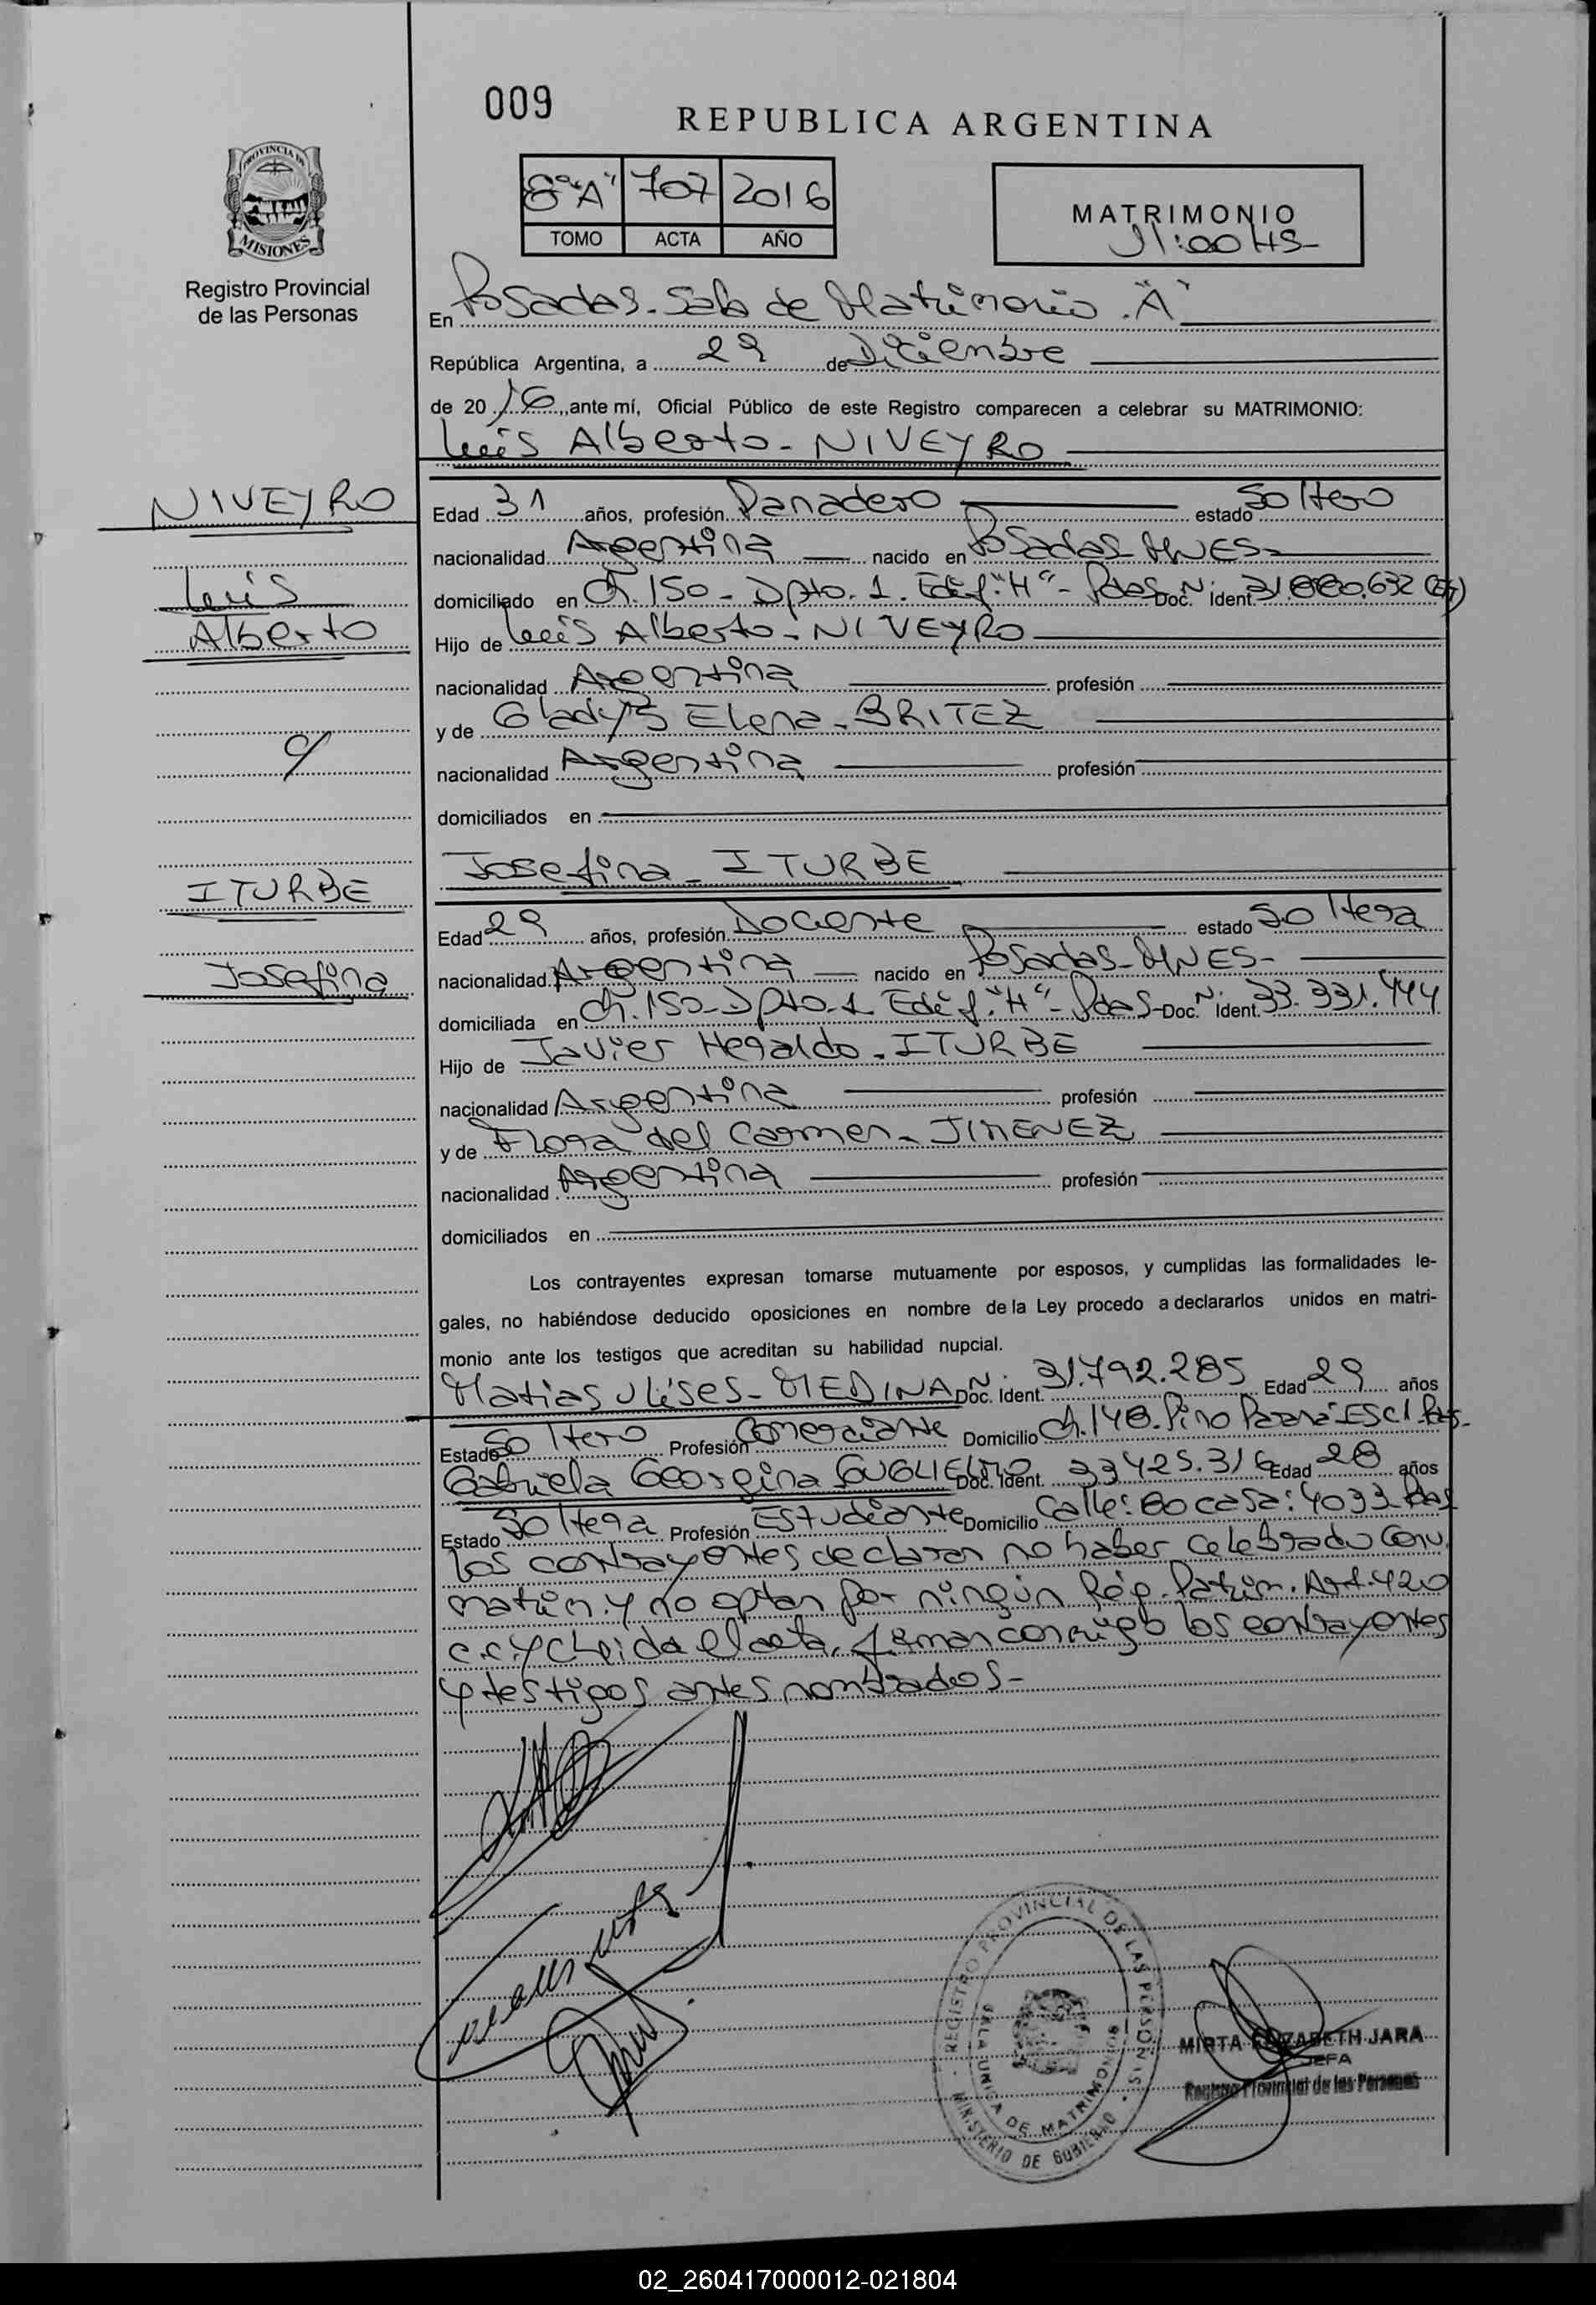 009
REPUBLICA ARGENTINA
8º "A" 707 2016
TOMO ACTA AÑO
MATRIMONIO
11:00 HS-
PROVINCIA DE
MISIONES
Registro Provincial
de las Personas
En Posadas-Sala de Matrimonio "A"
República Argentina, a 29 de Diciembre
de 2016, ante mí, Oficial Público de este Registro comparecen a celebrar su MATRIMONIO:
Luis Alberto-NIVEYRO
NIVEYRO
Luis
Alberto
c/
ITURBE
Josefina
Edad 31 años, profesión Panadero estado Soltero
nacionalidad Argentina nacido en Posadas-MNES-
domiciliado en Ch. 150-Dpto. 1. Edif. "H"-Pdas Doc. N. Ident. 31. .632
Hijo de Luis Alberto-NIVEYRO
nacionalidad Argentina profesión
y de Gladys Elena-BRITEZ
nacionalidad Argentina profesión
domiciliados en
Josefina-ITURBE
Edad 29 años, profesión Docente estado Soltera
nacionalidad Argentina nacido en Posadas-MNES-
domiciliada en Ch. 150-Dpto-1 Edif. "H"-Pdas-Doc. N. Ident. 33.331.444
Hijo de Javier Heraldo-ITURBE
nacionalidad Argentina profesión
y de Flora del Carmen-JIMENEZ
nacionalidad Argentina profesión
domiciliados en
Los contrayentes expresan tomarse mutuamente por esposos, y cumplidas las formalidades le-
gales, no habiéndose deducido oposiciones en nombre de la Ley procedo a declararlos unidos en matri-
monio ante los testigos que acreditan su habilidad nupcial.
Matias Ulises-MEDINA Doc. N. Ident. 31.792.285 Edad 29 años
Estado Soltero Profesión Comerciante Domicilio Ch. 148. Pino Parana-ESC1
Gabriela Georgina GUGLIELMO Doc. Ident. 33425.316 Edad 28 años
Estado Soltera Profesión Estudiante Domicilio Calle: 80 casa: 4033 Pdas
Los contrayentes declaran no haber celebrado Conv.
matrim. y no optan por ningún Rég. Patrim. Art. 420
c.c. y c Leida el acta, firman conmigo los contrayentes
y testigos antes nombrados-
REGISTRO PROVINCIAL DE LAS PERSONAS
SALA UNICA DE MATRIMONIOS
MINISTERIO DE GOBIERNO
MIRTA ELIZABETH JARA
JEFA
Registro Provincial de las Personas
02_260417000012-021804